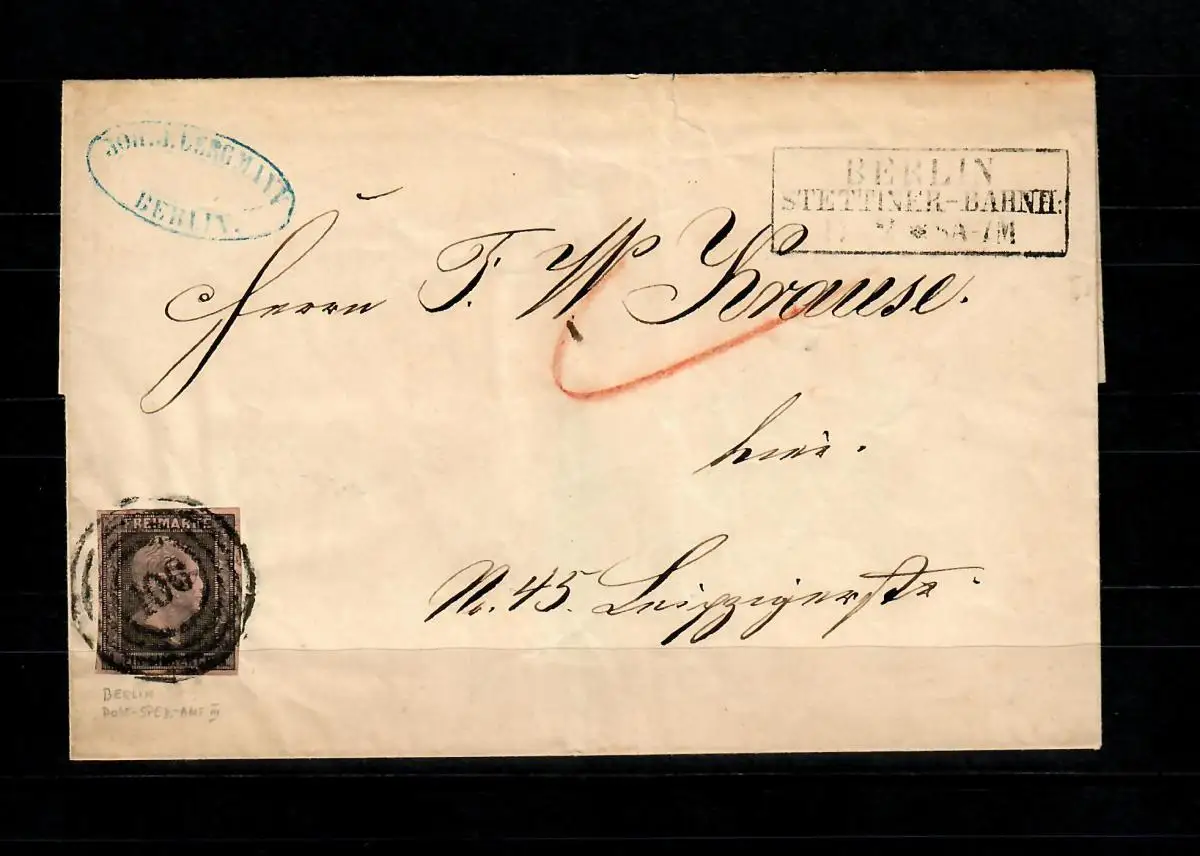 JOH. J. BERGMANN
BERLIN.
BERLIN
STETTINER-BAHNH:
5A-7M
Herrn F. W. Krause.
hier.
N. 45. Leipzigerstr.
FREIMARKE
106
BERLIN
POST-SPED-AMT III